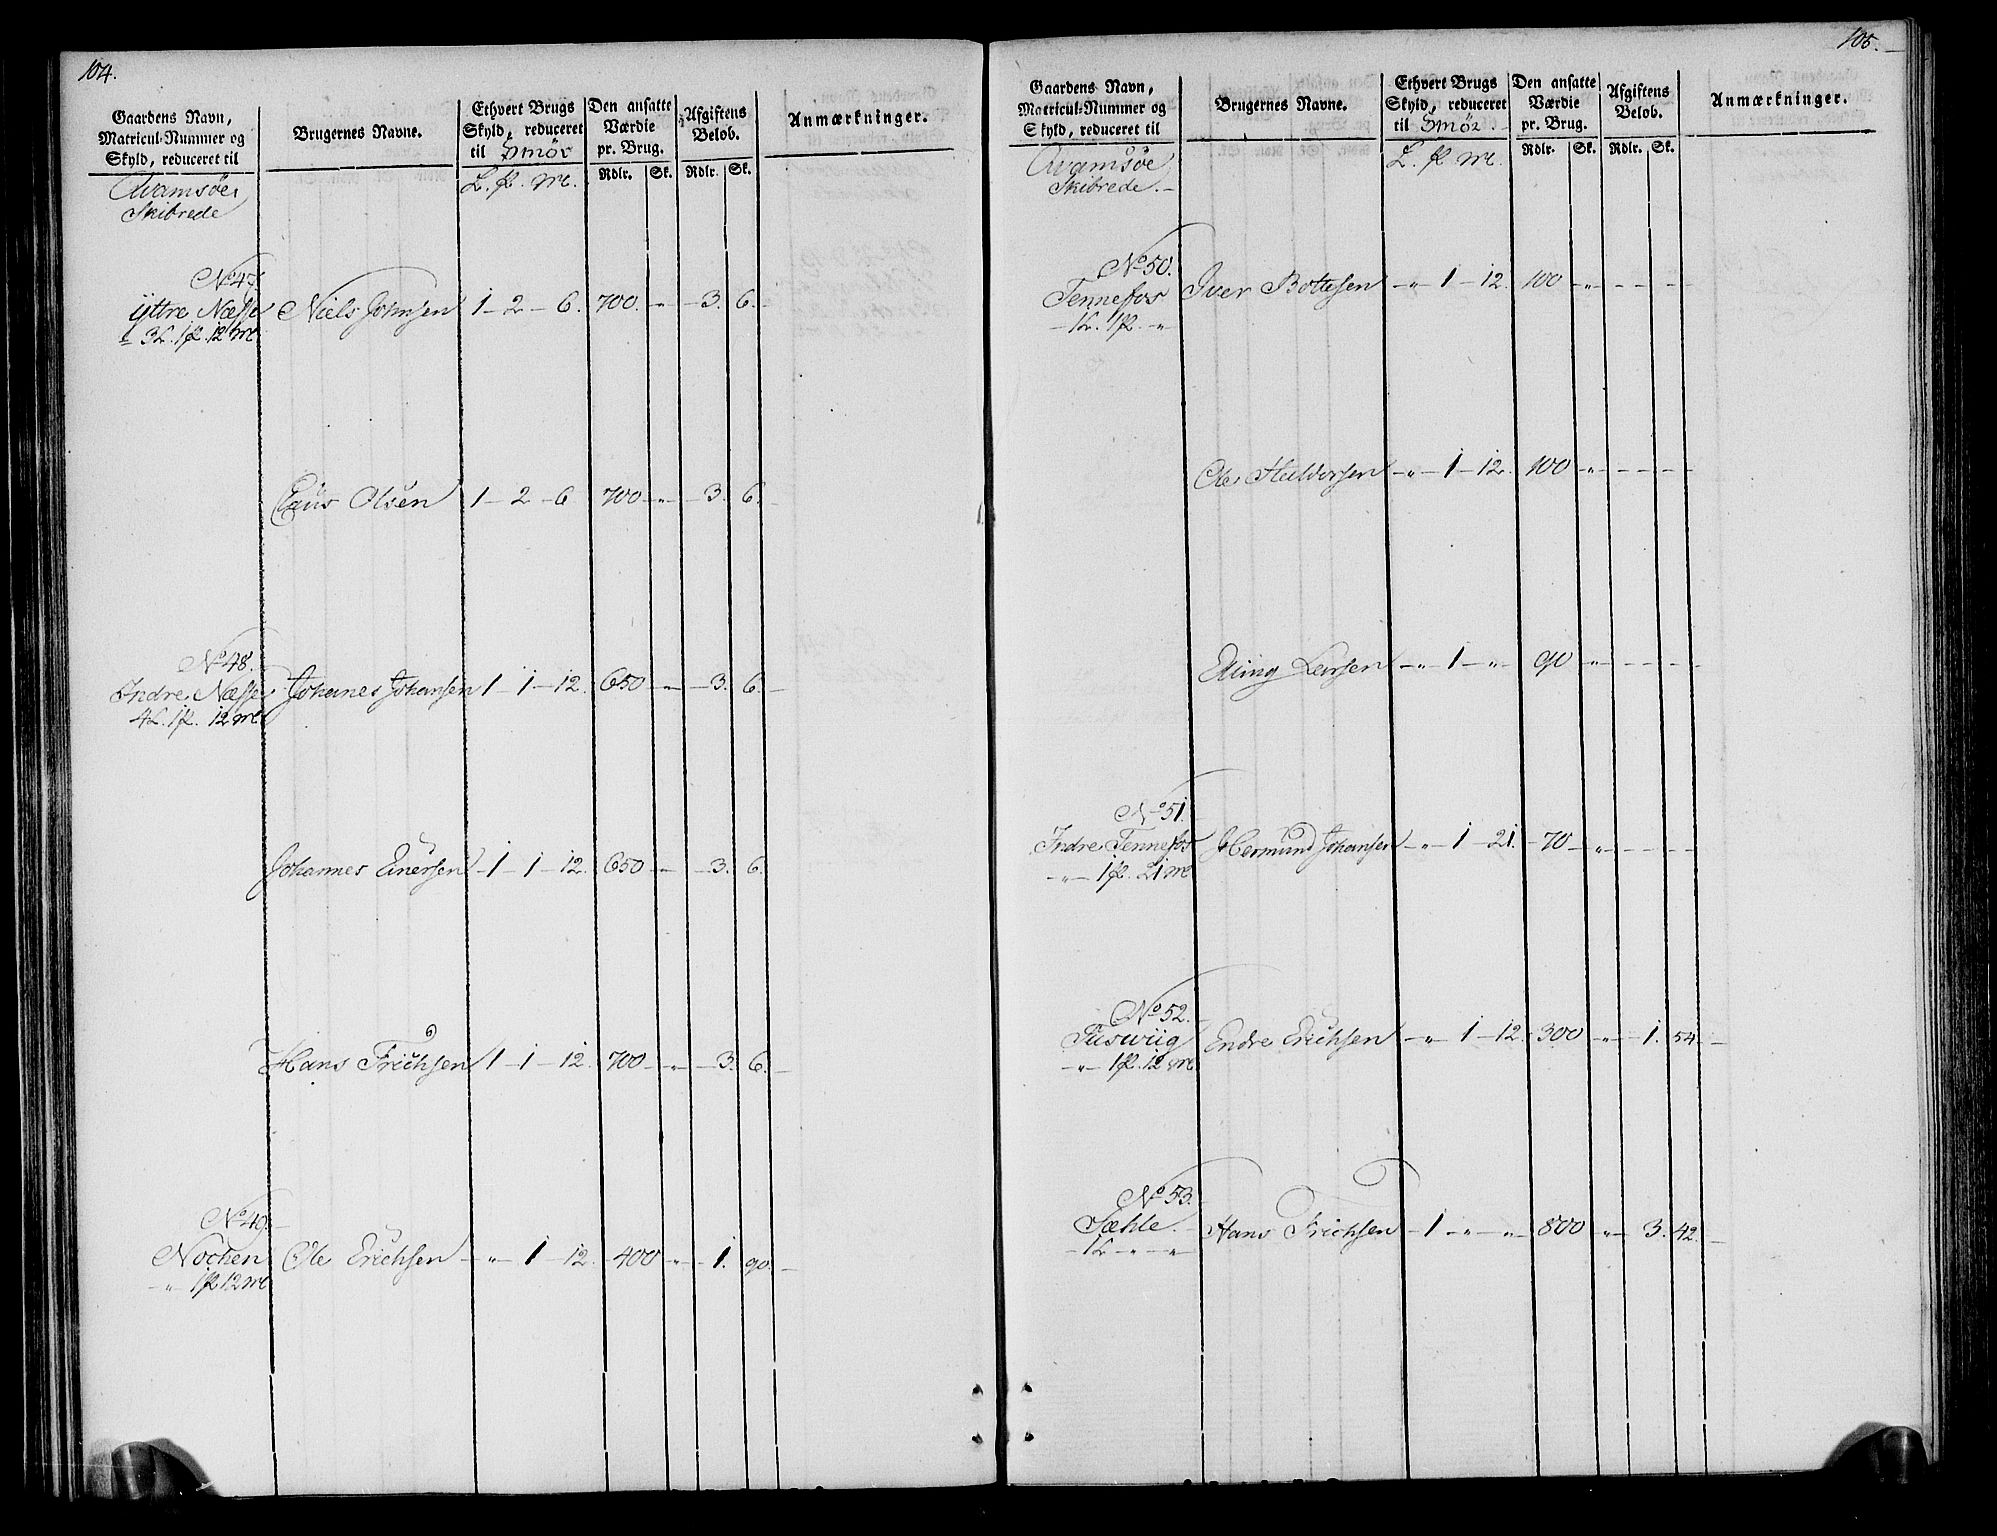 104.
Gaardens Navn, Matricul-Nummer og Skyld, reduceret til
Brugernes Navne.
Ethvert Brugs Skyld, reduceret til Smör
Den ansatte Værdie pr. Brug.
Afgiftens Belob.
Anmærkninger.
L. ℔. mc.
Rdlr. Sk. Rdlr. Sk.
Qvamsøe
Skibrede
No 47.
ÿttre Næsse Niels Johnsen 1 - 2 - 6. 700. „ - 3. 6.
3L. 1℔. 12 mc
Claus Olsen 1 - 2 - 6 700 - „ - 3. 6.
No 48.
Indre Næsse Johanes Johansen 1 - 1 - 12. 650 - „ - 3. 6.
4L. 1℔. 12 mc
Johannes Einersen 1 - 1 - 12. 650 - „ - 3. 6.
Hans Frichsen 1 - 1 - 12. 700 - „ - 3. 6.
No 49.
Nochen Ole Erichsen - „ - 1 - 12. 400 - „ - 1. 90.
- „ - 1℔ 12 mc
105.
Gaardens Navn, Matricul-Nummer og Skyld, reduceret til
Brugernes Navne.
Ethvert Brugs Skyld, reduceret til Smör
Den ansatte Værdie pr. Brug.
Afgiftens Belob.
Anmærkninger.
L. ℔. mc.
Rdlr. Sk. Rdlr. Sk.
Qvamsøe
Skibrede.
No 50.
Tennefos Iver Bottesen - „ - 1 - 12. 100 - „ - - - -
- 1L. 1℔. - „
Ole Haldorsen - „ - 1 - 12. 100 - „ - - - -
Larsen - „ - 1 - „ - 90 - „ - - - -
No 51.
Indre Tennefos Hermund Johansen - „ - 1 - 21. - 70 - „ - - - -
- „ - 1℔. 21 mc
No 52.
Endre Erichsen - „ - 1 - 12. 300 - „ - 1. 54.
- „ - 1℔. 12 mc.
No 53.
Sæhle. Hans Frichsen - 1 - „ - „ - 800 - „ - 3. 42.
- 1L - „ - „